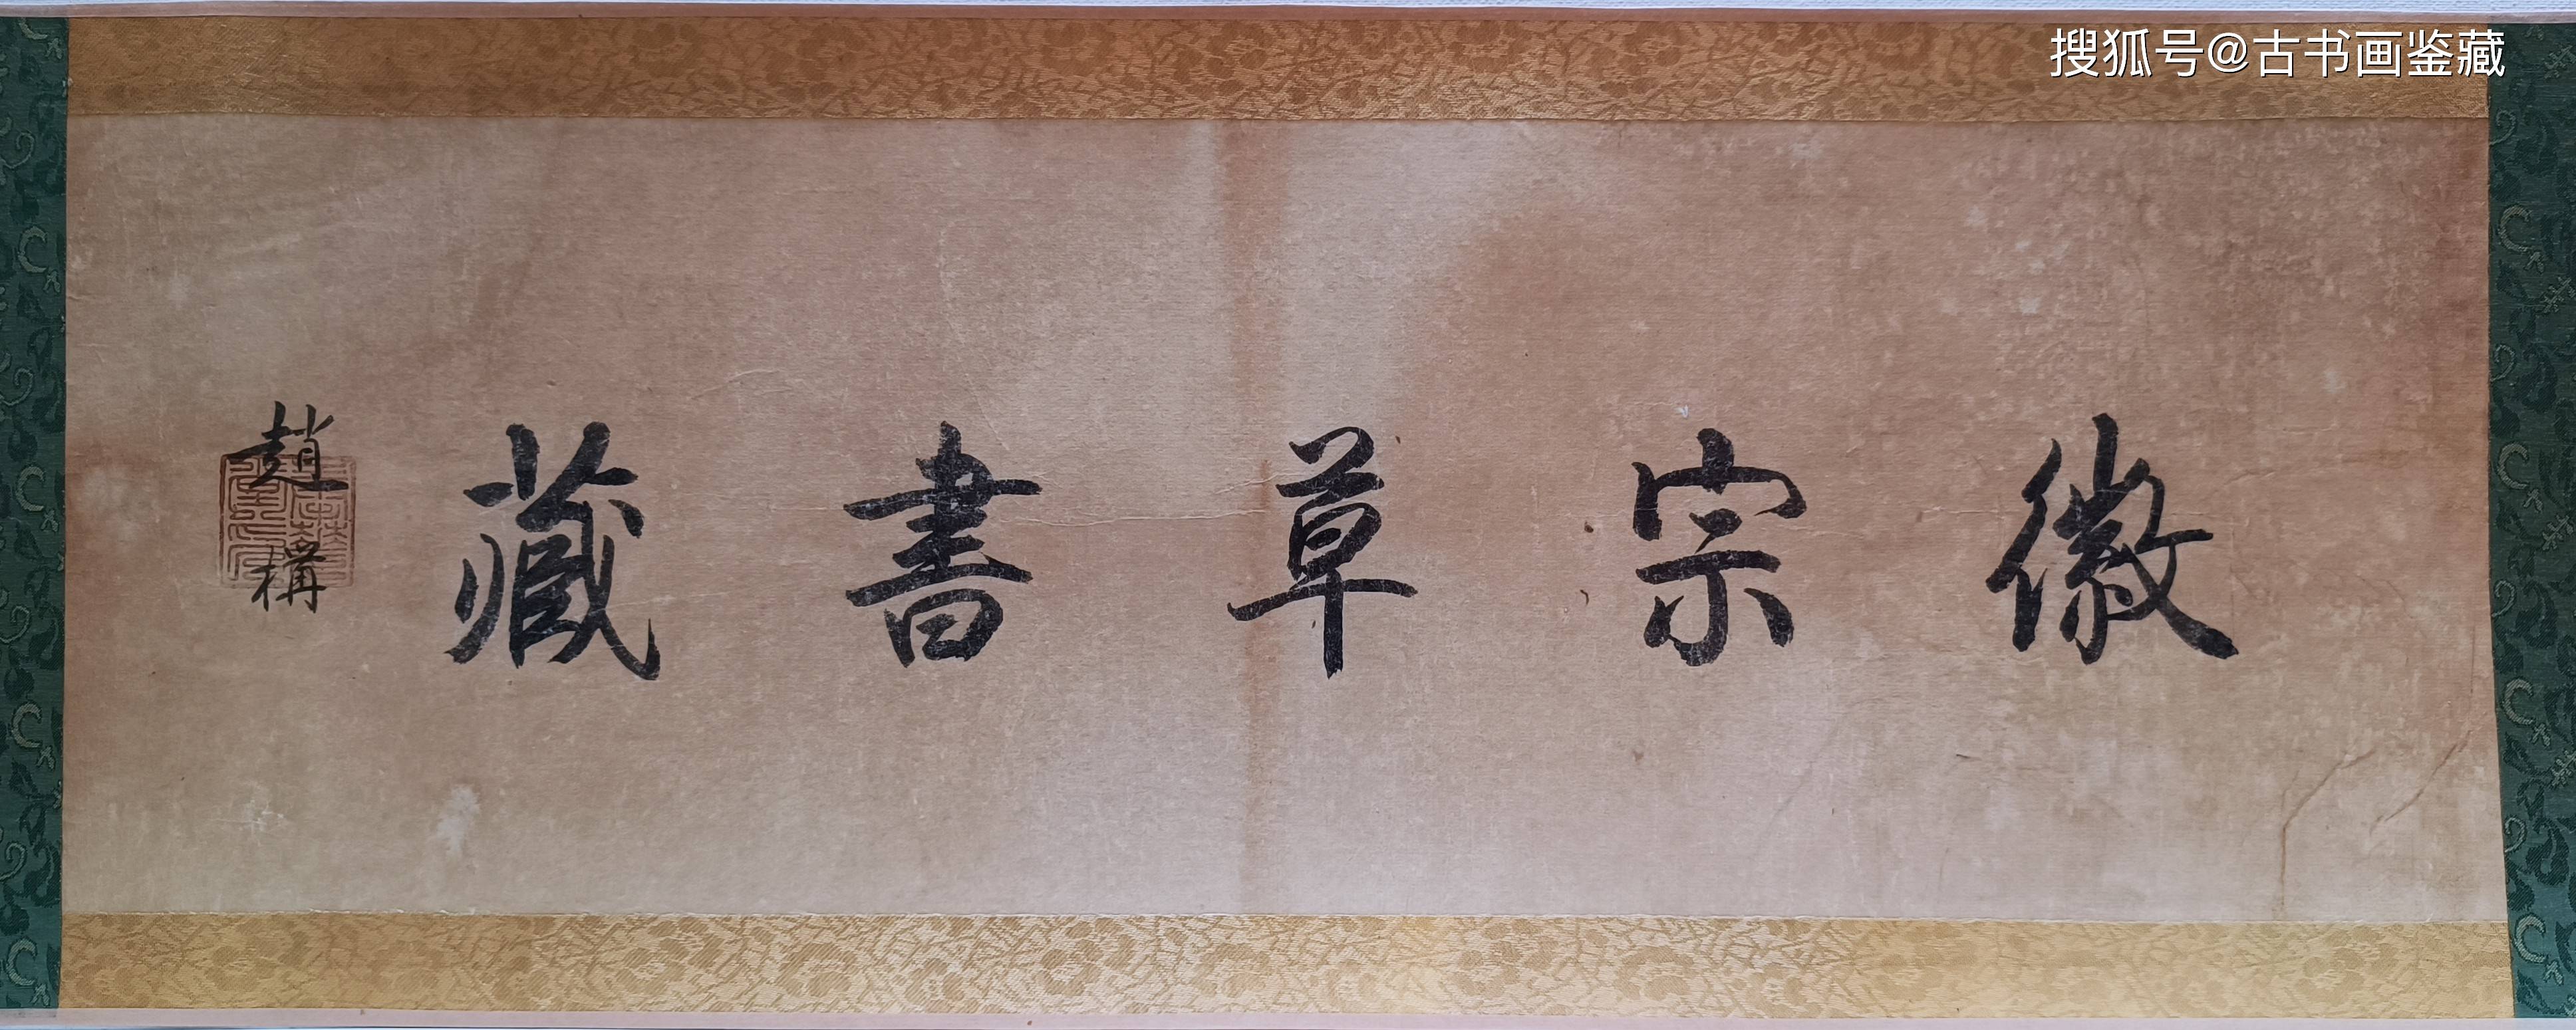 搜狐号@古书画鉴藏
徽宗草書藏
趙構